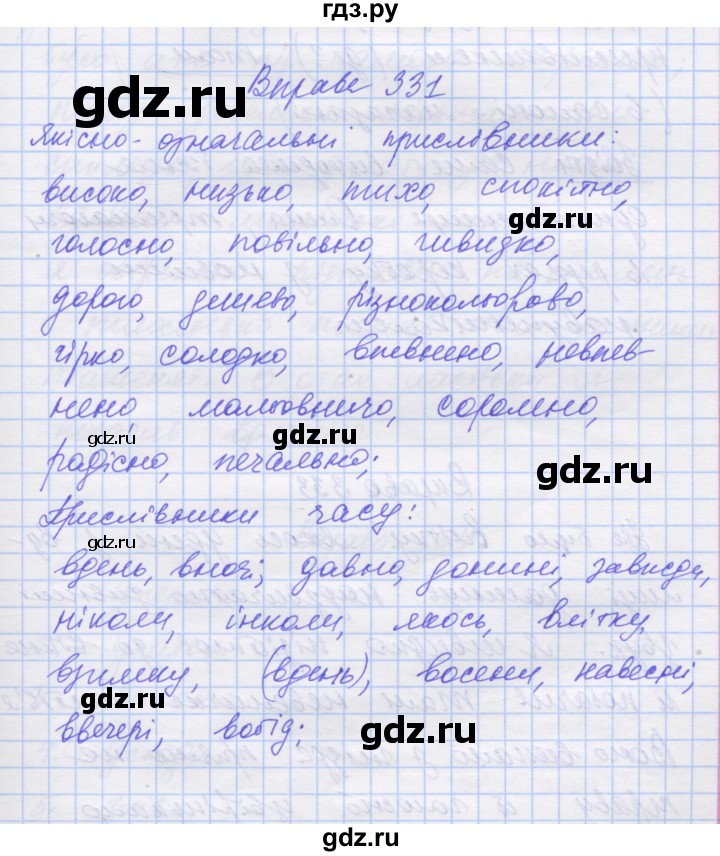 гдз.ру
Вправа 331
Якісно-означальні прислівники:
високо, низько, тихо, спокійно,
голосно, повільно, швидко,
дорого, дешево, різнокольорово,
гірко, солодко, впевнено, невпев-
нено мальовничо, соромно,
радісно, печально;
Прислівники часу:
вдень, вночі, давно, донині, завжди,
ніколи, інколи, якось, влітку,
взимку, (вдень), восени, навесні,
ввечері, вобід;
gdz.ru
gdz.ru
gdz.ru
gdz.ru
gdz.ru
gdz.ru
gdz.ru
gdz.ru
gdz.ru
gdz.ru